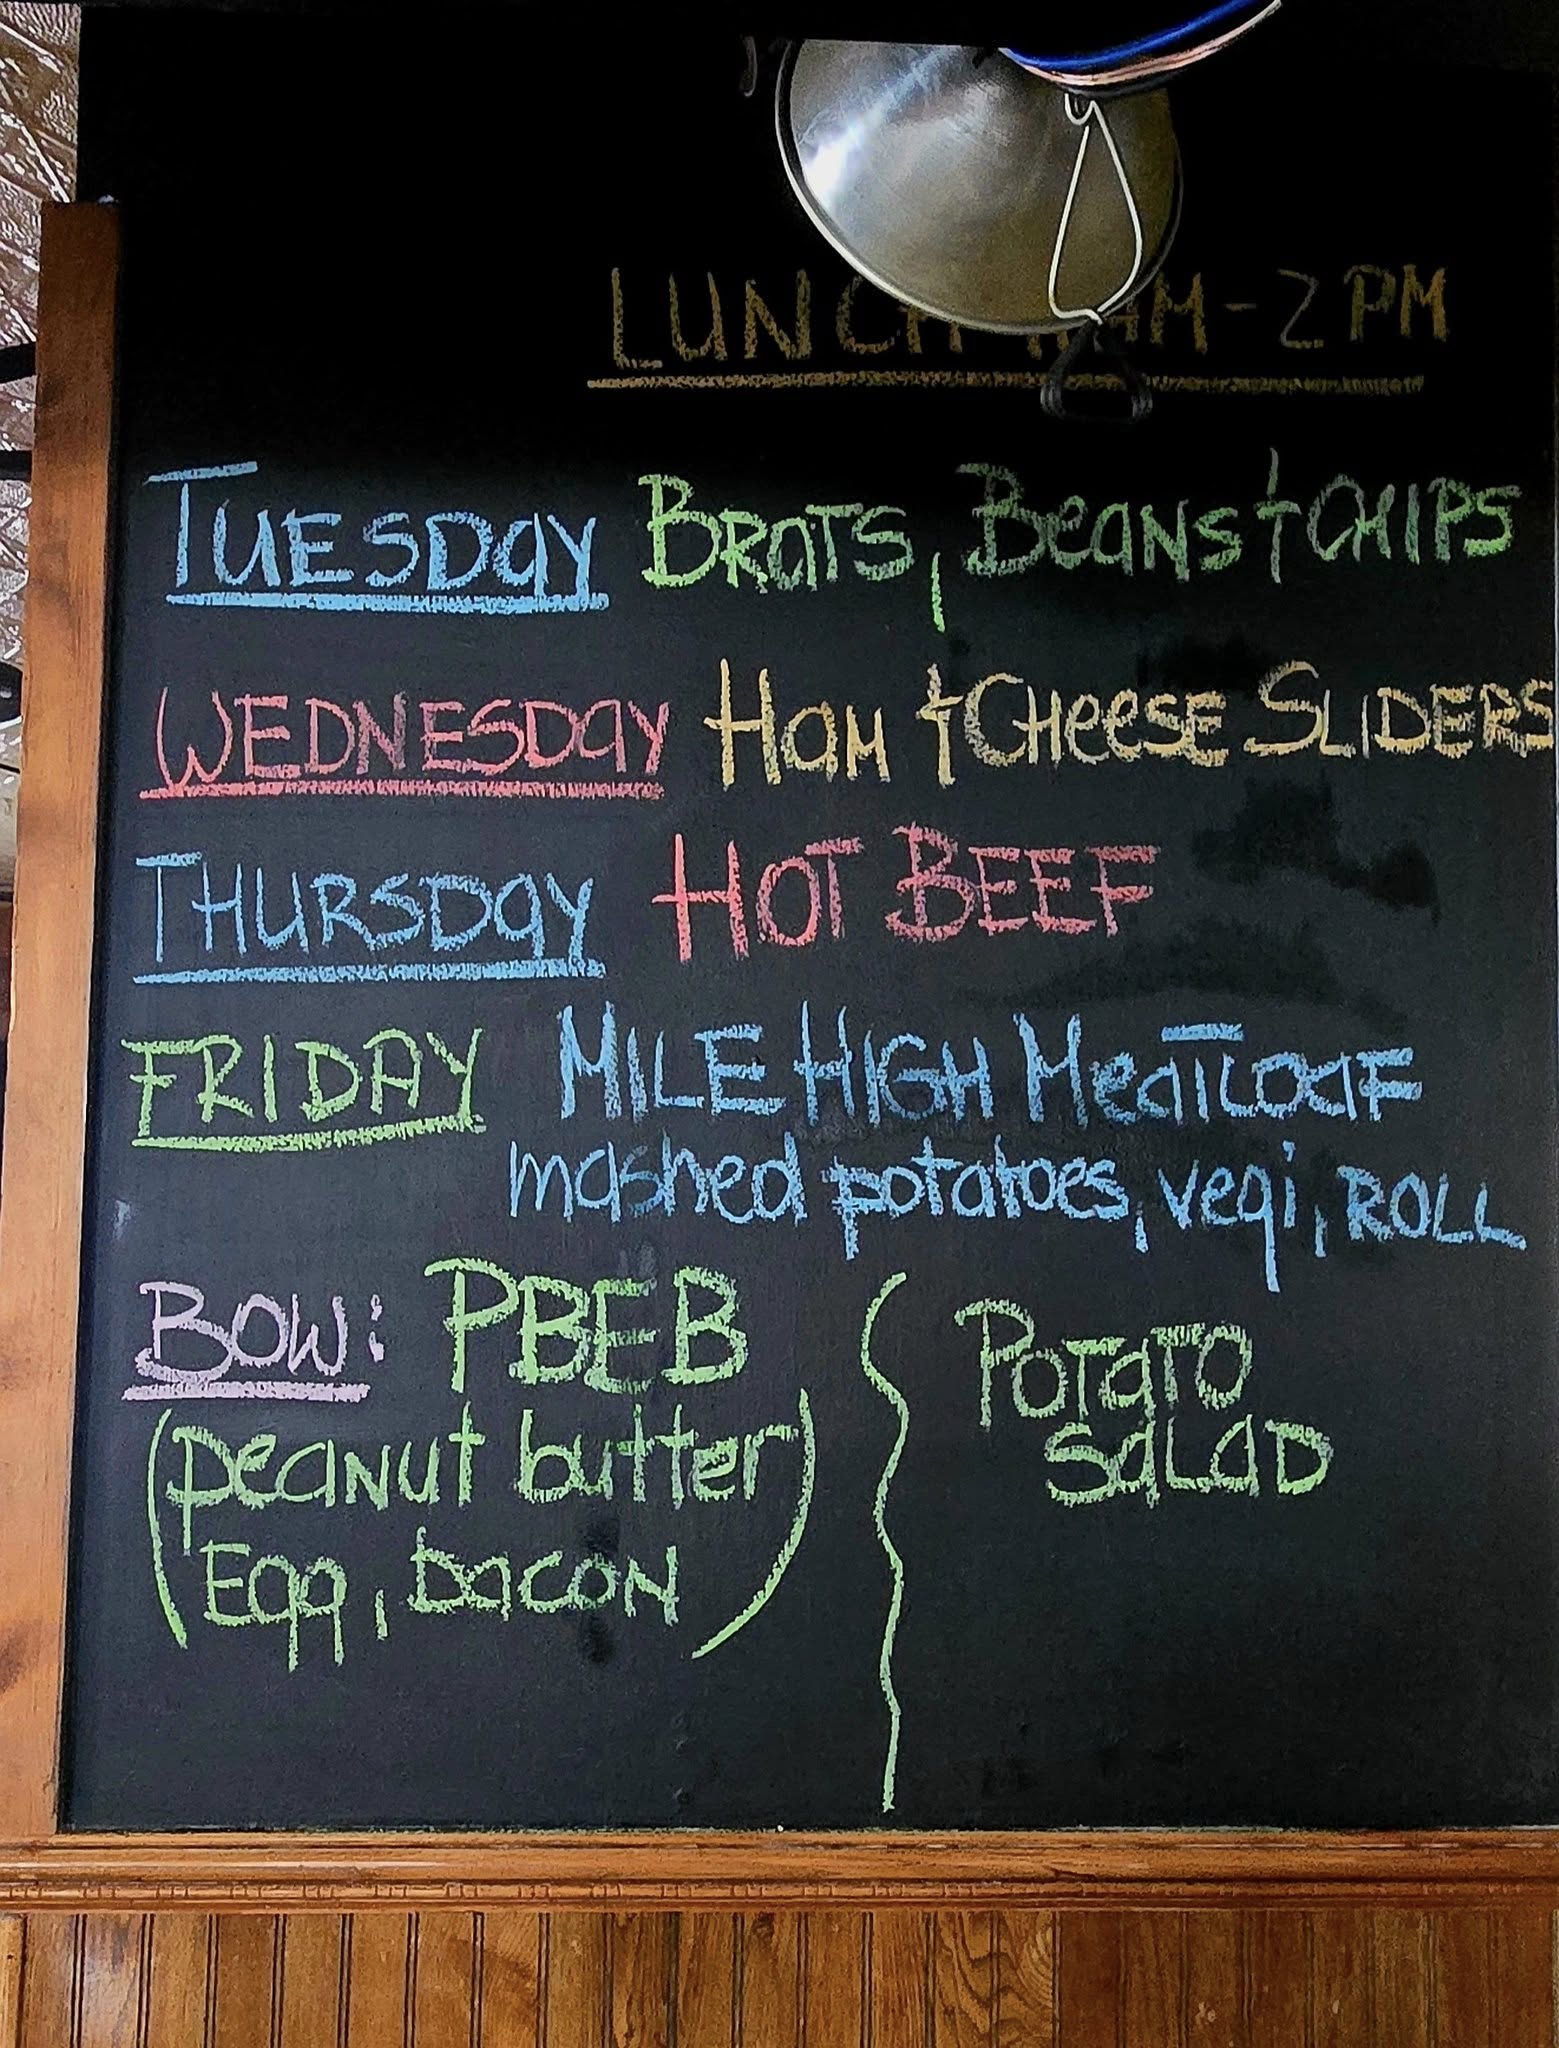 LUNCH 11AM-2PM
TUESDAY BRATS, BEANS + CHIPS
WEDNESDAY HAM + CHEESE SLIDERS
THURSDAY HOT BEEF
FRIDAY MILE HIGH MEATLOAF
mashed potatoes, vegi, ROLL
BOW: PBEB
(peanut butter
Egg, bacon)
POTATO
SALAD